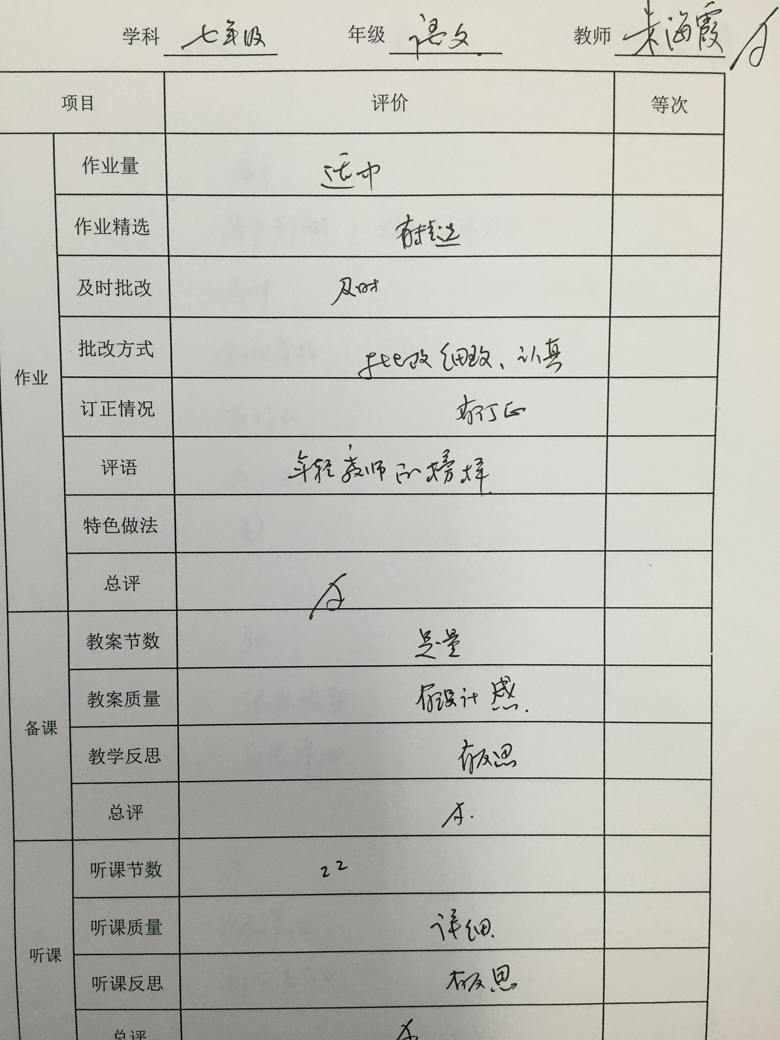 学科 七年级 年级 语文 教师 朱海霞 A
项目 评价 等次
作业 作业量 适中
作业精选 有精选
及时批改 及时
批改方式 批改细致、认真
订正情况 有订正
评语 年轻教师的榜样.
特色做法
总评 A
备课 教案节数 足量
教案质量 有设计感.
教学反思 有反思
总评 A.
听课 听课节数 22
听课质量 详细.
听课反思 有反思
总评 A